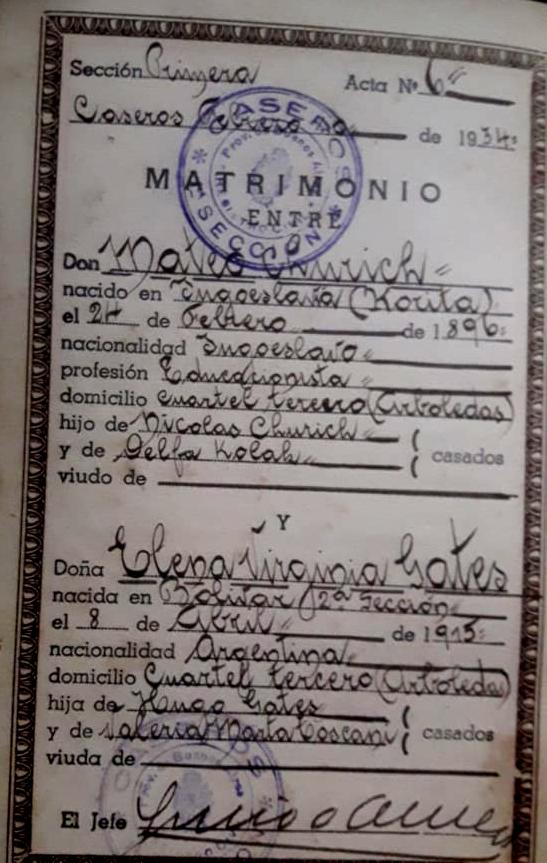 Sección Primera Acta Nº 6
Caseros Febrero de 1934
MATRIMONIO
ENTRE
CASEROS
SECCION
Don Mateo Churich
nacido en Yugoeslavia (Korita)
el 24 de Febrero de 1896
nacionalidad Yugoeslavo
profesión Educacionista
domicilio Cuartel tercero (Arboledas)
hijo de Nicolas Churich
y de casados
viudo de
Y
Doña Elena Virginia Gates
nacida en Bolivar 2ª Sección
el 8 de Abril de 1915
nacionalidad Argentina
domicilio Cuartel tercero (Arboledas)
hija de Hugo Gates
y de Valeria Marta Toscani casados
viuda de
El Jefe